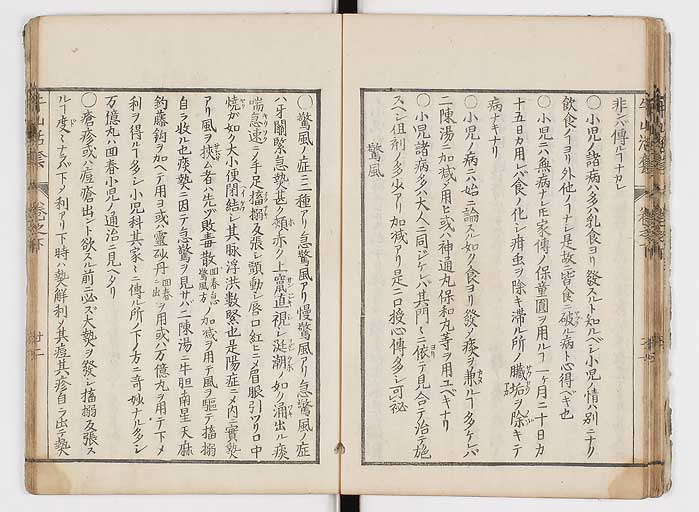 非ンバ傳ルヿナカレ
〇小児ノ諸病ハ多ハ乳食ヨリ發スルト知ルベシ小児ノ情ハ別ニナク
飲食イヨリ外他ノヿナシ是故ニ皆食ニ破ル病ト心得ベキ也
〇小児ニハ無病ナレ𪜈家傳ノ保童圓ヲ用ルヿ一ヶ月ニ二十日カ
十五日カ用レバ食ノ化シ疳虫ヲ除キ滞ル所ノ臓垢ヲ除キテ
病ナキナリ
〇小児ノ病ニハ始ニ論スル如ク食ヨリ發ノ痰ヲ兼ルヿ多ケレバ
二陳湯ニ加减ノ用ヒ或ハ神通丸保和丸等ヲ用ユベキナリ
〇小児諸病多ハ大人ニ同ジケレバ其門々ニ依テ見合テ治テ施
スベシ但剤ノ多少アリ加减アリ是ニ口授心傳多シ可秘
驚風
〇驚風ノ症ニ三種アリ急驚風アリ慢驚風アリ急驚風ノ症
ハ牙關緊急熱甚ク頬赤ク上竄直視シ涎潮ノ如ク涌出ル痰
喘息速ニノ手足搐搦反張シ顫動シ唇口紅ヒニノ眉眼引ツリ口中
焼ガ如ク大小便閉結シ其脉浮洪數緊也是陽症ニノ内ニ實熱
アリ風ヲ挾ム者ハ先ヅ敗毒散四春急驚風方ノ加减ヲ用テ風ヲ驅テ搐搦
自ラ收ル也痰熱ニ因テ急驚ヲ見サバ二陳湯ニ牛胆南星天麻
釣藤鈎ヲ加ヘテ用ヨ或ハ靈砂丹四春ニ出ヲ用或ハ万億丸ヲ用テ下ノ
利ヲ得ルヿ多シ小児科其家々ニ傳ル所ノ下ノ方ニ奇妙ナル多シ
万億丸ハ四春小児ノ通治ニ見ヘタリ
〇痘疹或ハ痘瘡出ント欲スル前ニ必ズ大熱ヲ發シ搐搦反張ス
ルヿ度々ニナレバ下ノ利アリ下時ハ熱解利ノ其痘其疹自ラ出テ熱